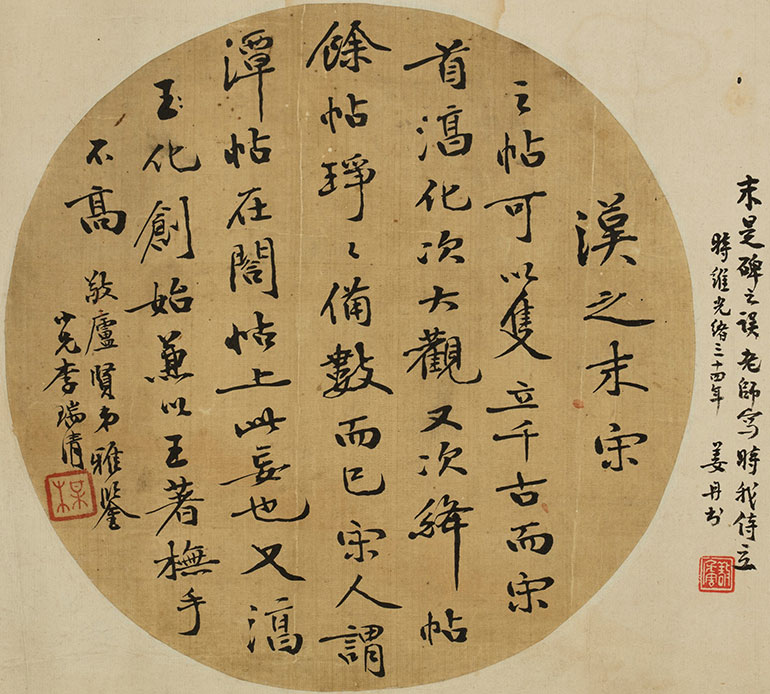 末是碑之误老師写時我侍立
時維光緒三十四年 姜丹书
漢之末宋
之帖可以隻立千古而宋
首淳化次大觀又次絳帖
餘帖琤〻備數而已宋人謂
潭帖在閣帖上此妄也又淳
玉化創始兼以王著橅手
不高 敬廬賢弟雅鑒
小兄李瑞清